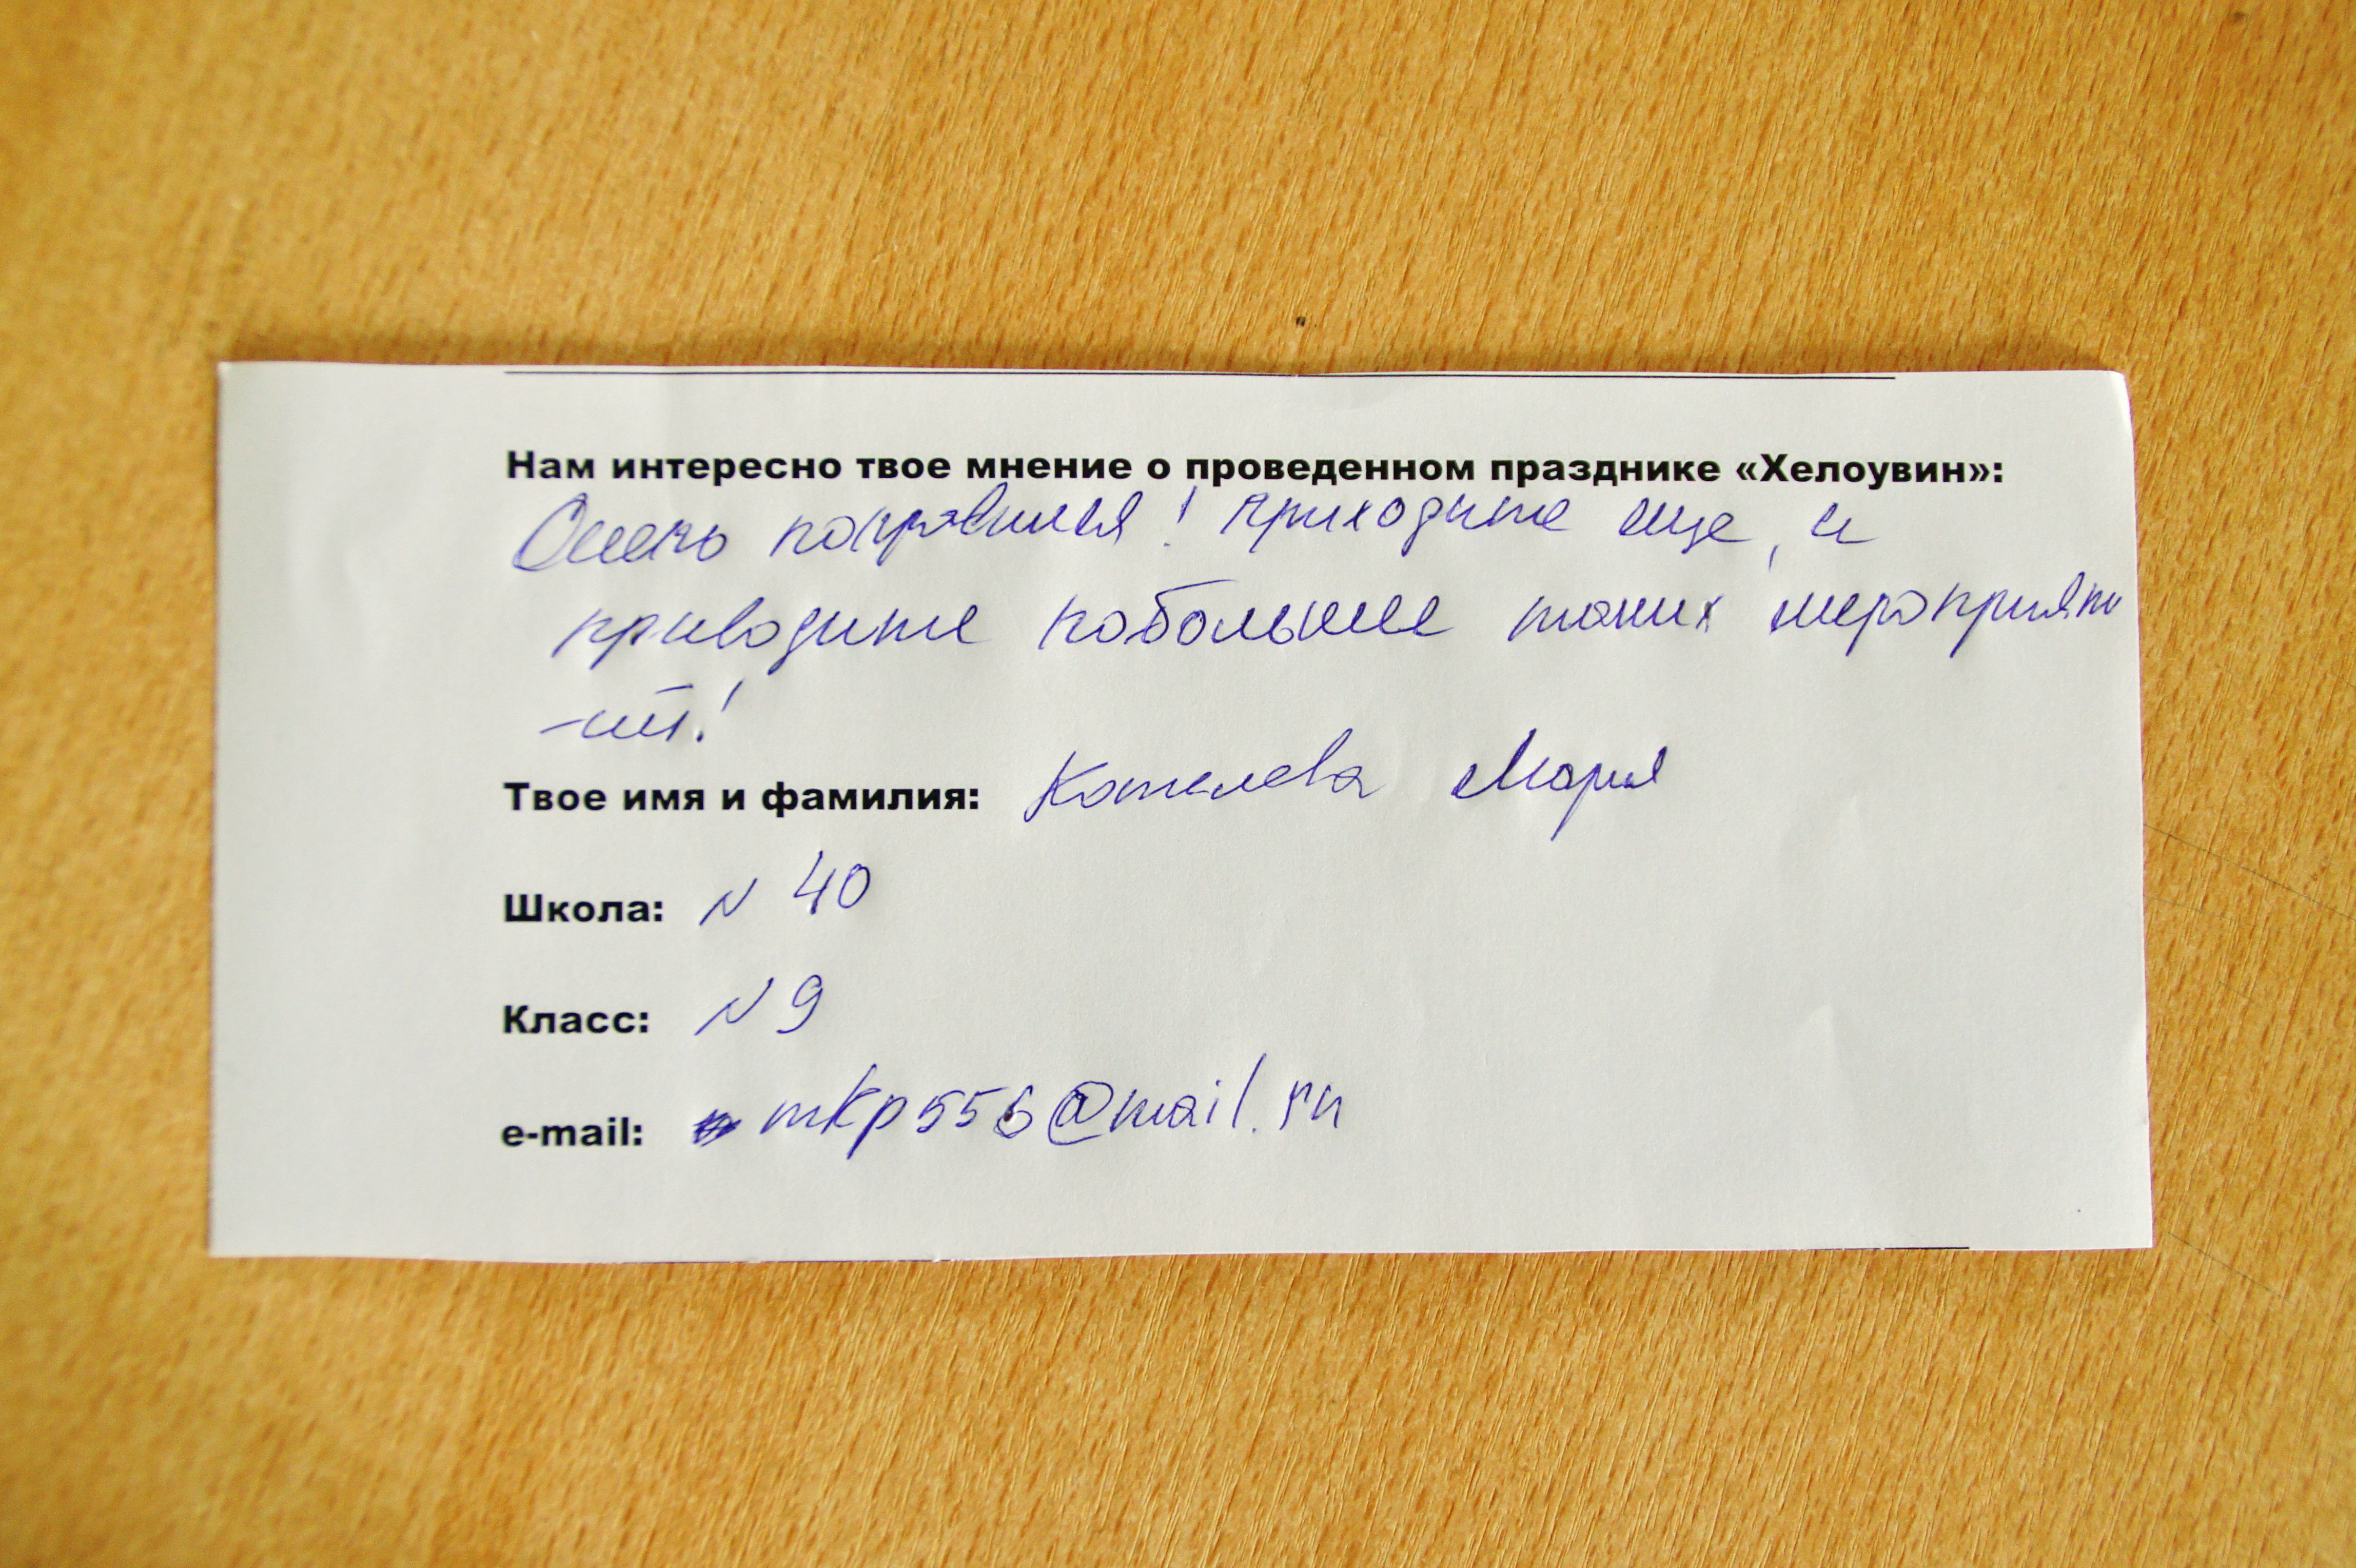 Нам интересно твое мнение о проведенном празднике «Хелоувин»:
Очень понравился! приходите еще, и
приводите побольше таких мероприяти
-ий!
Твое имя и фамилия: Котелева Мария
Школа: N 40
Класс: N 9
e-mail: mkp556@mail.ru